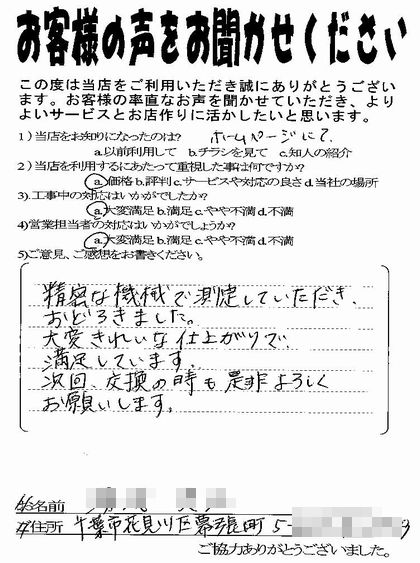 お客様の声をお聞かせください
この度は当店をご利用いただき誠にありがとうござい
ます。お客様の率直なお声を聞かせていただき、より
よいサービスとお店作りに活かしたいと思います。
1)当店をお知りになったのは? ホームページにて。
a.以前利用して b.チラシを見て c.知人の紹介
2)当店を利用するにあたって重視した事は何ですか?
a.価格 b.評判 c.サービスや対応の良さ d.当社の場所
3).工事中の対応はいかがでしたか?
a.大変満足 b.満足 c.やや不満 d.不満
4)営業担当者の対応はいかがでしょうか?
a.大変満足 b.満足 c.やや不満 d.不満
5)ご意見、ご感想をお書きください。
精密な機械で測定していただき、
おどろきました。
大変きれいな仕上がりで
満足しています。
次回、交換の時も是非よろしく
お願いします。
お名前
ご住所 千葉市花見川区幕張町 5-
ご協力ありがとうございました。